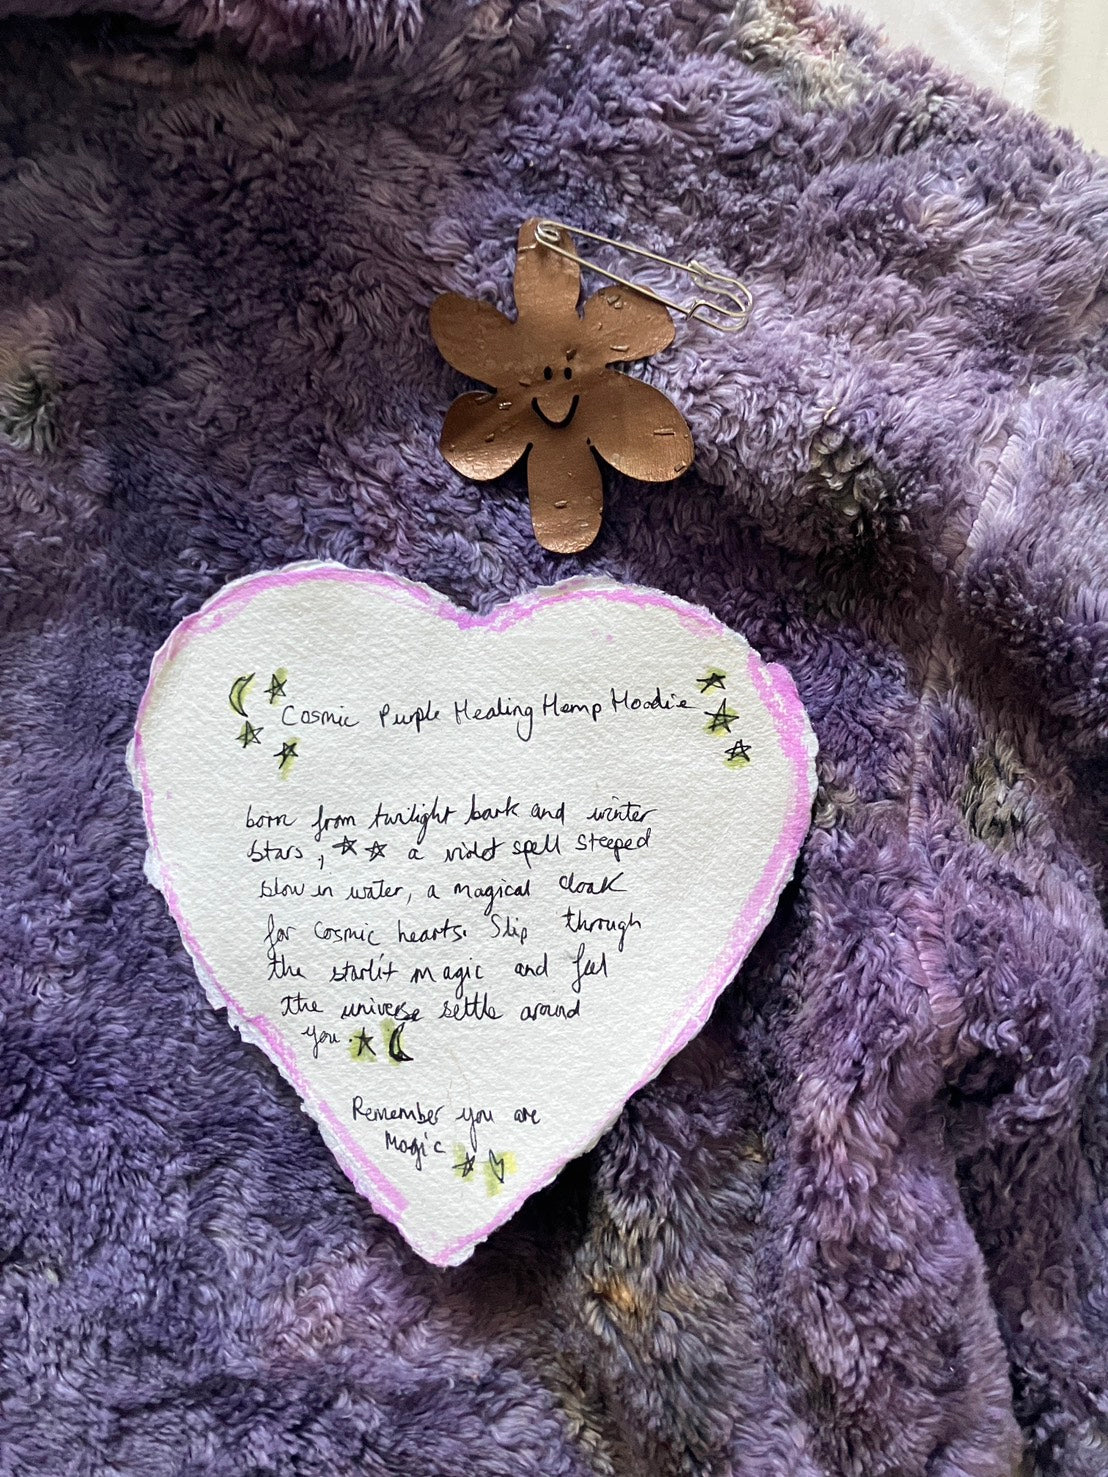 Cosmic Purple Healing Hemp Hoodie
born from twilight bark and winter
stars, a violet spell steeped
slow in water, a magical cloak
for cosmic hearts. Slip through
the starlit magic and feel
the universe settle around
you.
Remember you are
Magic